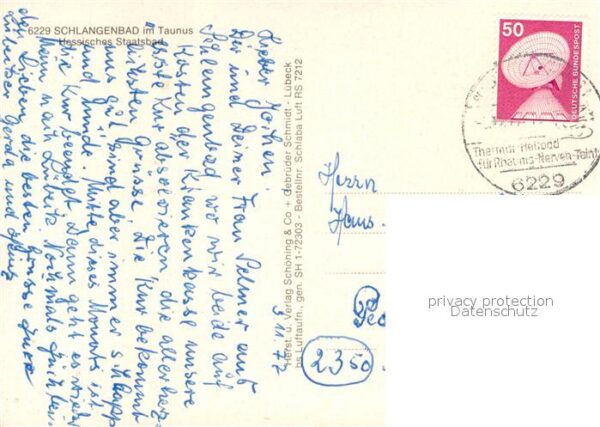 6229 SCHLANGENBAD im Taunus
Hessisches Staatsbad
Lieber Jochen
Dir und Deiner Frau Selmer aus
Schlangenbad wo wir beide auf
Kosten der Krankenkasse unsere
erste Kur absolvieren die allerherz-
lichsten Grüsse. Die Kur bekommt
uns gut sind aber immer schlapp
und müde. Mitte dieses Monats ist
die Kur beendet dann geht es wieder
nach Lübeck. Nochmals Euch
den Lieben die besten Grüsse Eure
Gerda und
3.11.77
Herst. u. Verlag Schöning & Co + Gebrüder Schmidt - Lübeck
hs Luftaufn., gen. SH 1-72303 - Bestellnr. Schlaba Luft RS 7212
50
DEUTSCHE BUNDESPOST
Thermal Heilbad
für Rheuma-Nerven-Teint
6229
Herrn
Hans
2350
privacy protection
Datenschutz